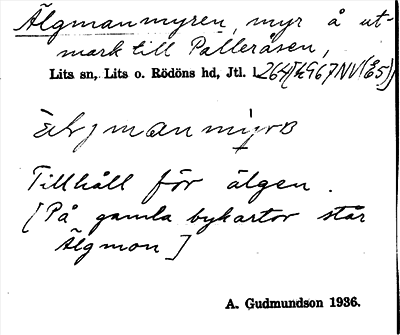 Älgmanmyren, myr å ut-
mark till Palleråsen,
Lits sn, Lits o. Rödöns hd, Jtl.
Tillhåll för älgen.
[På gamla bykartor står
Älgmon]
A. Gudmundson 1936.